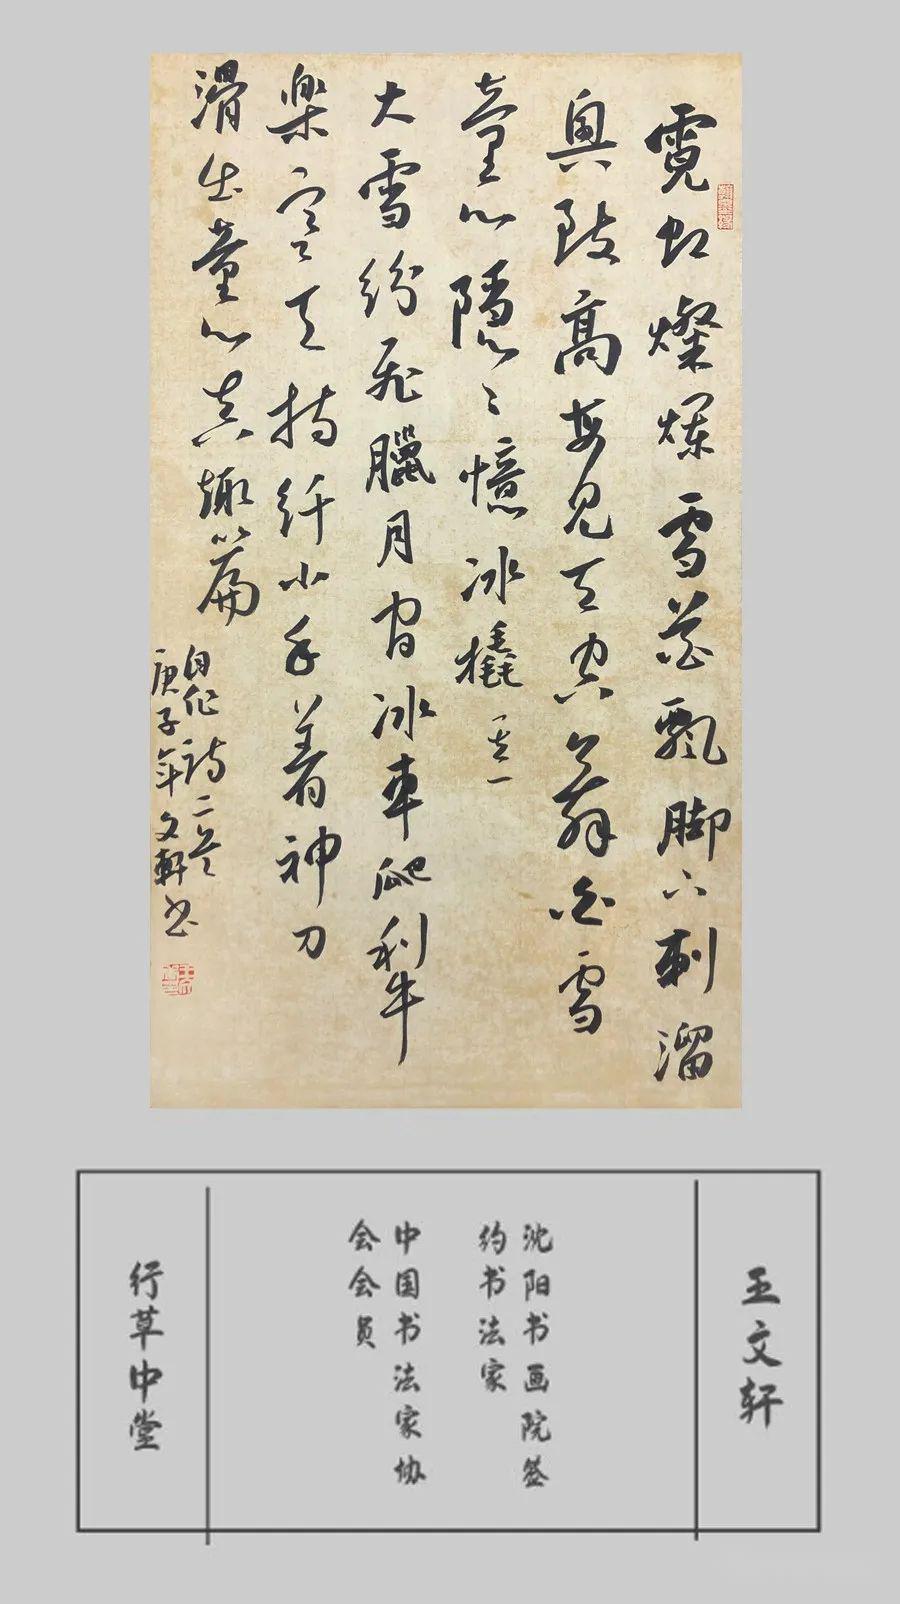 霓虹燦爛雪花飄脚下刺溜
興致高每見天空舞白雪
童心隱々憶冰橇 其一
大雪紛飛臘月間冰車爬犁
樂寒天持纤小手着神力
滑出童心真趣篇
自作詩二首
庚子年文軒書
王文轩
沈阳书画院签
约书法家
中国书法家协
会会员
行草中堂